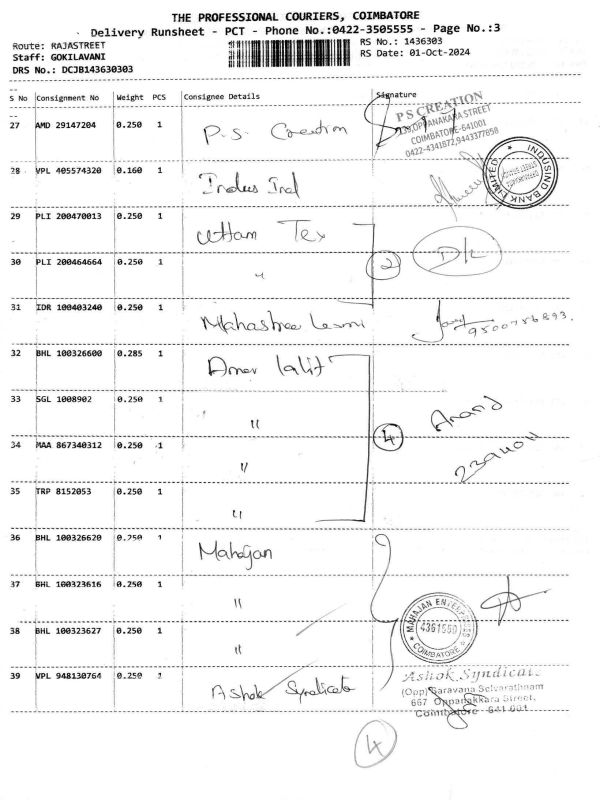 THE PROFESSIONAL COURIERS, COIMBATORE
Delivery Runsheet - PCT - Phone No.:0422-3505555 - Page No.:3
Route: RAJASTREET
RS No.: 1436303
Staff: GOKILAVANI
RS Date: 01-Oct-2024
DRS No.: DCJB143630303
S No Consignment No Weight PCS Consignee Details Signature
27 AMD 29147204 0.250 1 P.S. Creation
P S CREATION
139,OPPANAKARA STREET
COIMBATORE-641001
0422-4341872,9443377858
28 VPL 405574320 0.160 1 Indus Ind
INDUSIND BANK LIMITED
29 PLI 200470013 0.250 1 Uttam Tex
30 PLI 200464664 0.250 1 "
2
31 IDR 100403240 0.250 1
9500756893.
32 BHL 100326600 0.285 1 Amer lalit
33 SGL 1008902 0.250 1 "
4 Anand
34 MAA 867340312 0.250 1 "
35 TRP 8152053 0.250 1 "
36 BHL 100326620 0.250 1 Mahajan
37 BHL 100323616 0.250 1 "
MAHAJAN ENTERPRISES
4361550
COIMBATORE
38 BHL 100323627 0.250 1 "
39 VPL 948130764 0.250 1 Ashok Syndicate
Ashok Syndicate
(Opp) Saravana Selvarathnam
667 Oppanakkara Street,
Coimbatore - 641 001
4